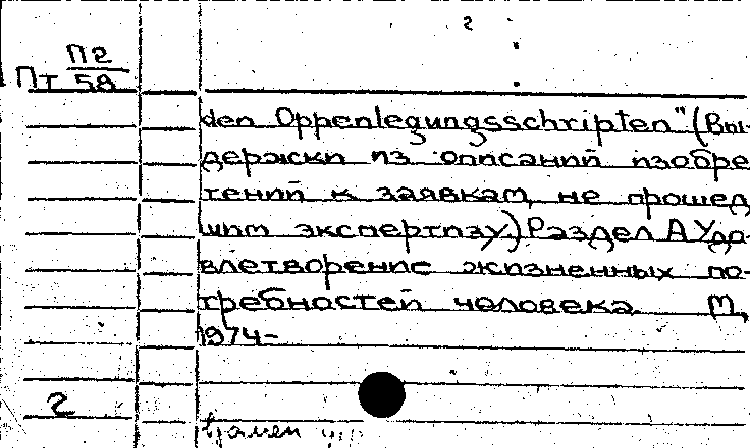 2
П2
Пт 58
den Oppenlegungsschripten" (Вы-
держки из описаний изобре
тений к заявкам, не прошед
шим экспертизу.) Раздел А Удо-
влетворение жизненных по-
требностей человека. М,
1974-
2